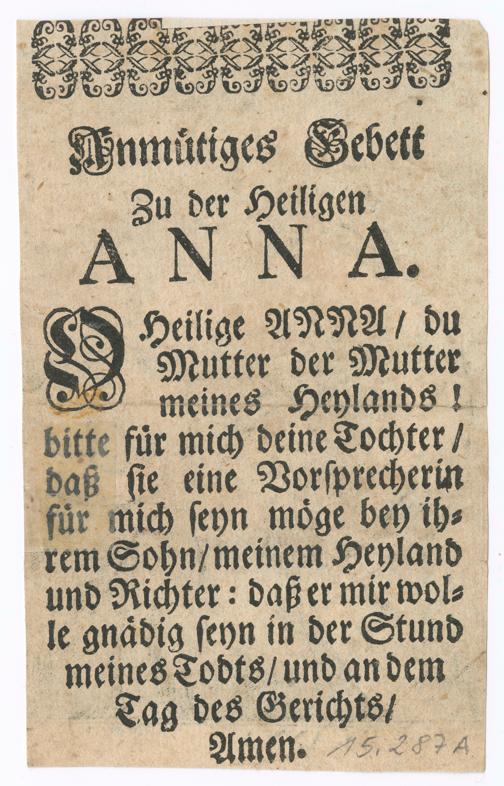 Anmütiges Gebett
Zu der Heiligen
ANNA.
O Heilige ANNA / du
Mutter der Mutter
meines Heylands !
bitte für mich deine Tochter /
daß sie eine Vorsprecherin
für mich seyn möge bey ih-
rem Sohn / meinem Heyland
und Richter : daß er mir wol-
le gnädig seyn in der Stund
meines Todts / und an dem
Tag des Gerichts /
Amen.
15.287A